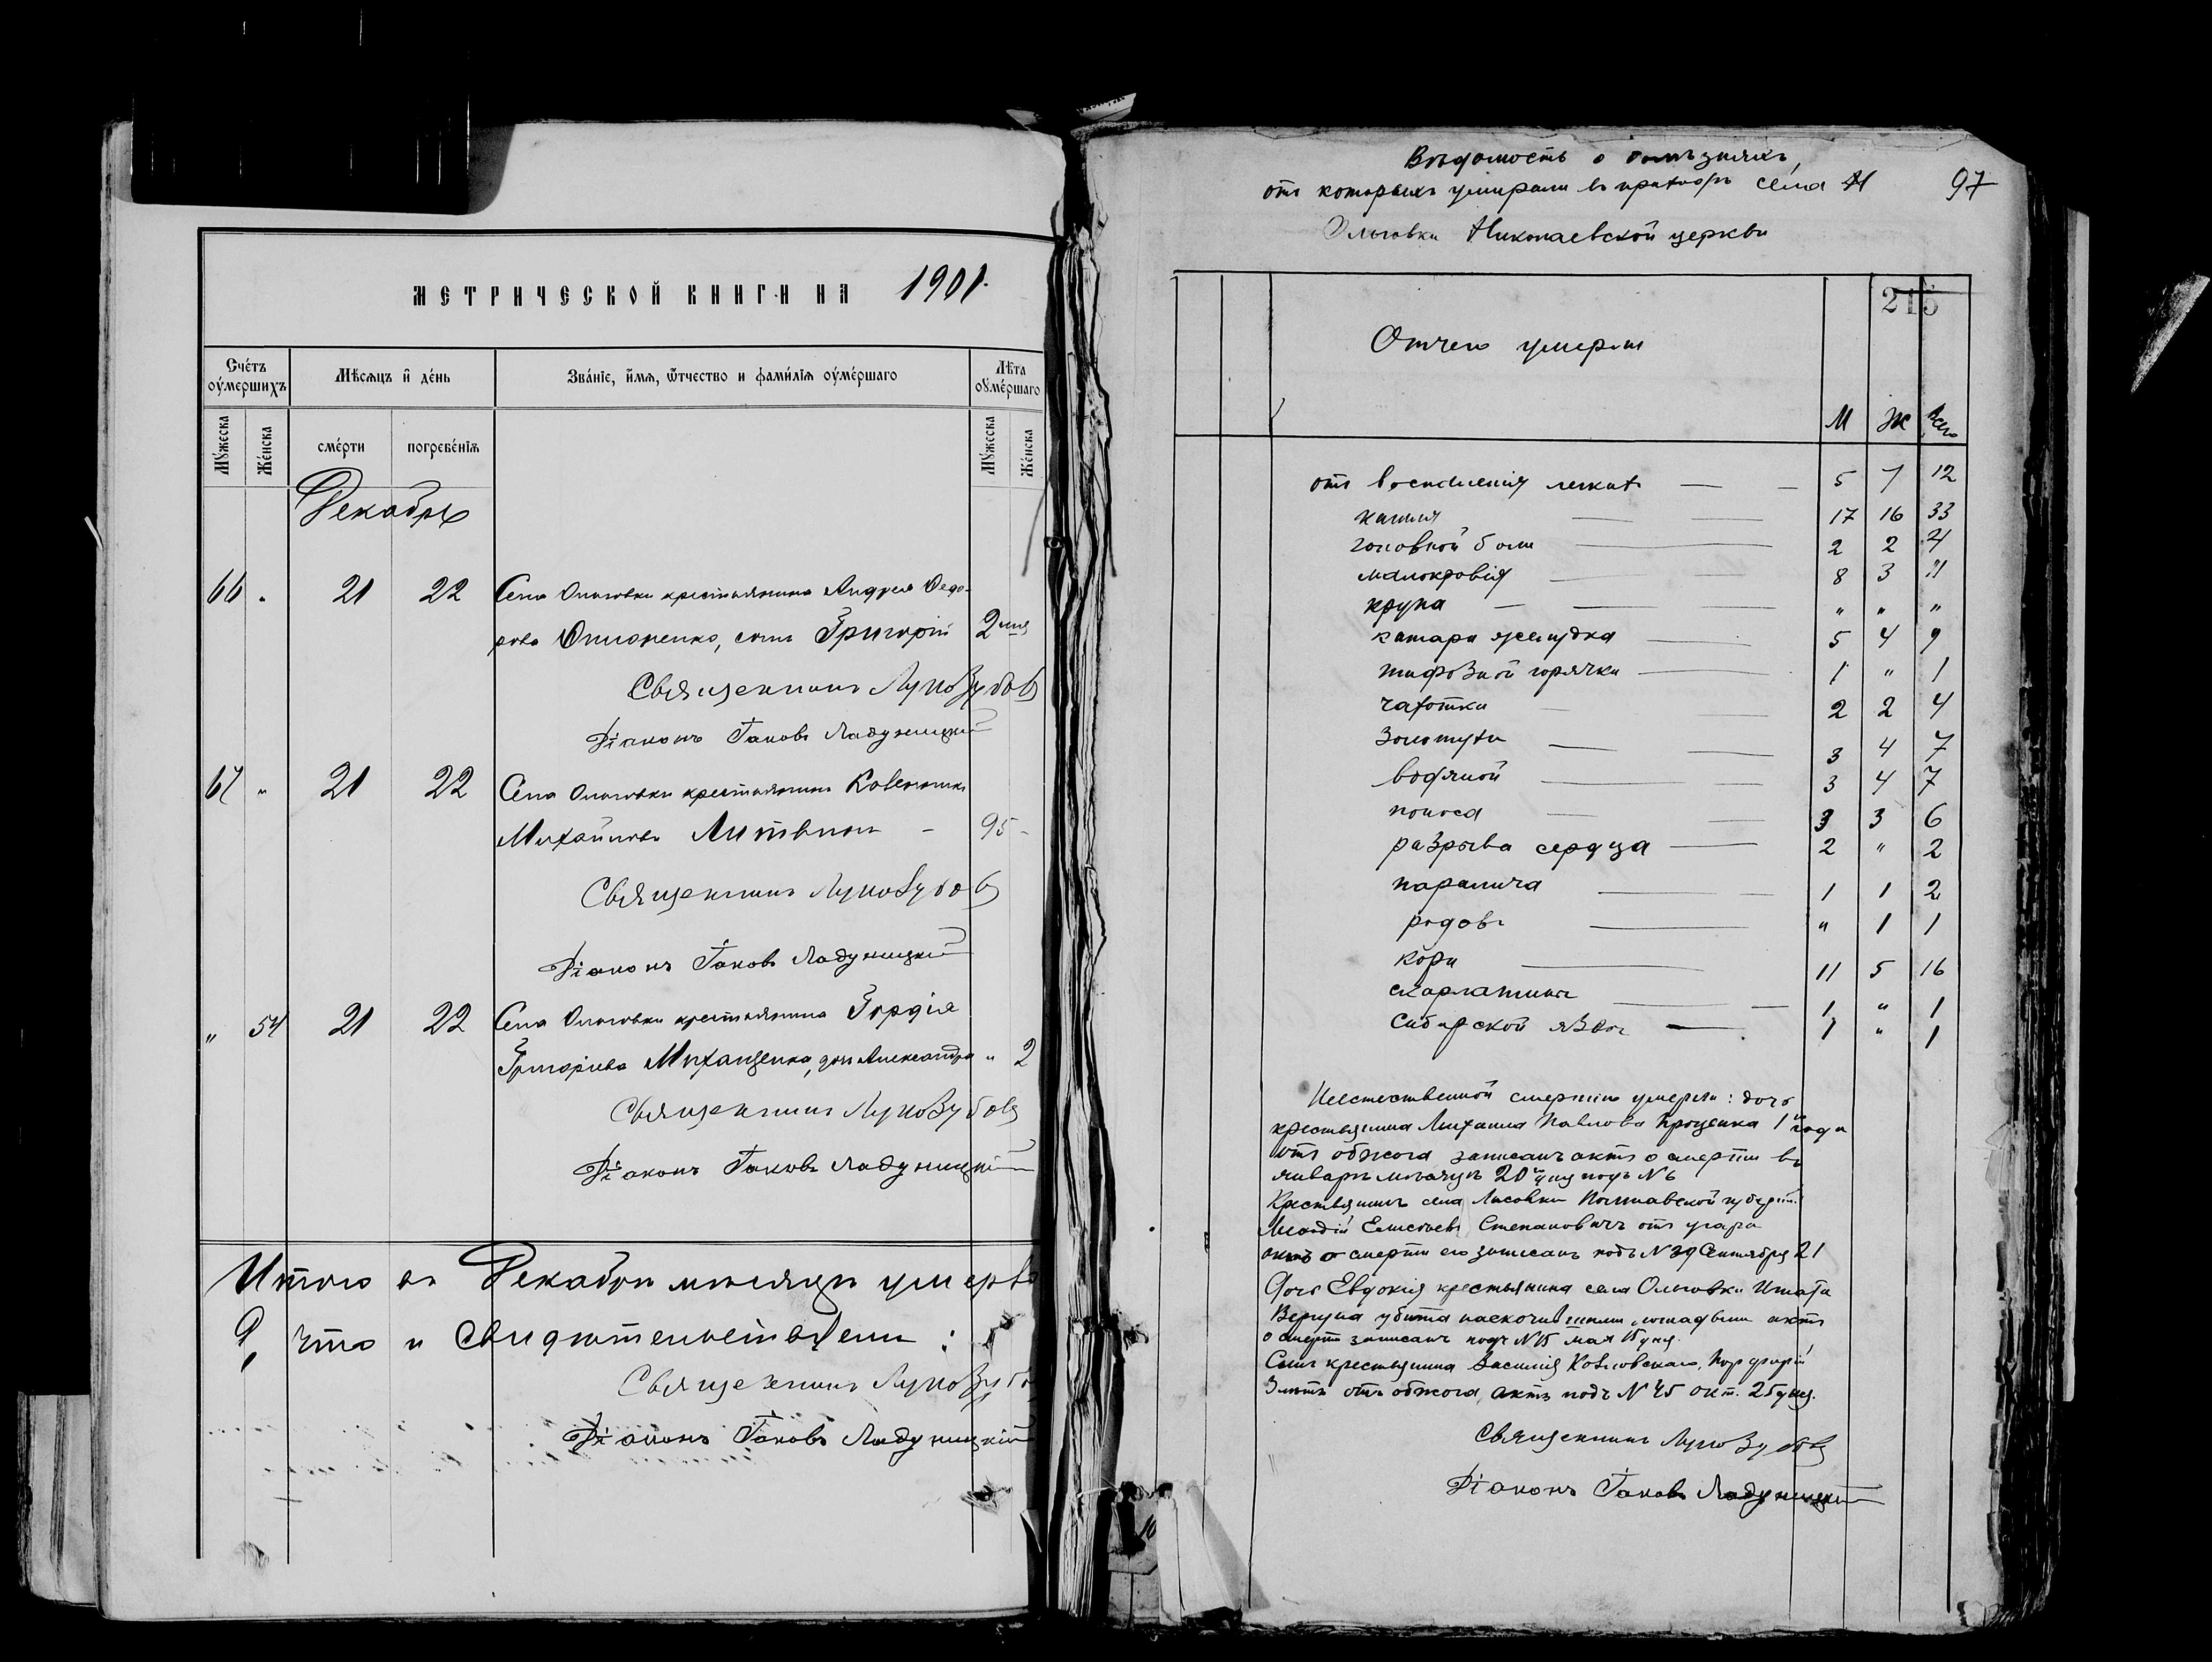 МЕТРИЧЕСКОЙ КНИГИ НА 1901.
Счéтъ оумершихъ
Мѣсяцъ и дéнь
Звáніе, имя, ѿтчество и фамилія оумéршаго
Лѣта оумéршаго
Мужеска
Женска
смéрти
погребéнія
Мужеска
Женска
Декабрь
66 " 21 22 Села Ольговки крестьянина Андрея Ѳедо-
рова сынъ Григорій 2
Священникъ Лукозубовъ
Діаконъ Іаковъ Ладухницкій
67 " 21 22 Села Ольговки крестьянинъ
Михайловъ Литвинъ - 95 -
Священникъ Лукозубовъ
Діаконъ Іаковъ
" 54 21 22 Села Ольговки крестьянина Гордія
Григоріева Михайленка, дочь Александра " 2
Священникъ Лукозубовъ
Діаконъ Іаковъ
Итого въ Декабрѣ мѣсяцѣ умерло
9, что и свидѣтельствуемъ:
Священникъ
Діаконъ Іаковъ
Вѣдомость о болѣзняхъ,
отъ которыхъ умирали въ приходѣ села
Ольговки Николаевской церкви
97
215
Отчего умерли
М Ж Всего
отъ воспаленія легкихъ — — 5 7 12
кашля — — 17 16 33
головной боли — 2 2 4
малокровія — — 8 3 11
крупа — — " " "
катара желудка — 5 4 9
тифозной горячки — 1 " 1
чахотки — — 2 2 4
золотухи — — 3 4 7
водяной — — 3 4 7
поноса — — 3 3 6
разрыва сердца — 2 " 2
паралича — 1 1 2
родовъ — " 1 1
кори — 11 5 16
скарлатины — — 1 " 1
сибирской язвы — 1 " 1
Неестественной смертію умерли: дочь
крестьянина Михаила Павлова Проценка 1 года
отъ обжога записанъ актъ о смерти въ
январѣ мѣсяцѣ 20 дня подъ № 6
Крестьянинъ села Лисовки Полтавской губерн.
Елисеевъ Степановичъ отъ угара
актъ о смерти его записанъ подъ № 39 Сентября 21
Дочь Евдокія крестьянина села Ольговки Игната
убита наскочившими лошадьми актъ
о смерти записанъ подъ № 15 мая 15 дня.
Сынъ крестьянина Василія Козловскаго, Порфирій
3 лѣтъ отъ обжога, актъ подъ № 45 окт. 25 дня.
Священникъ Лукозубовъ
Діаконъ Іаковъ